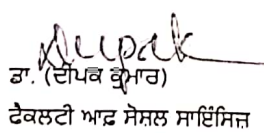 Deepak
ਡਾ. (ਦੀਪਕ ਕੁਮਾਰ)
ਫੈਕਲਟੀ ਆਫ਼ ਸੋਸ਼ਲ ਸਾਇੰਸਿਜ਼